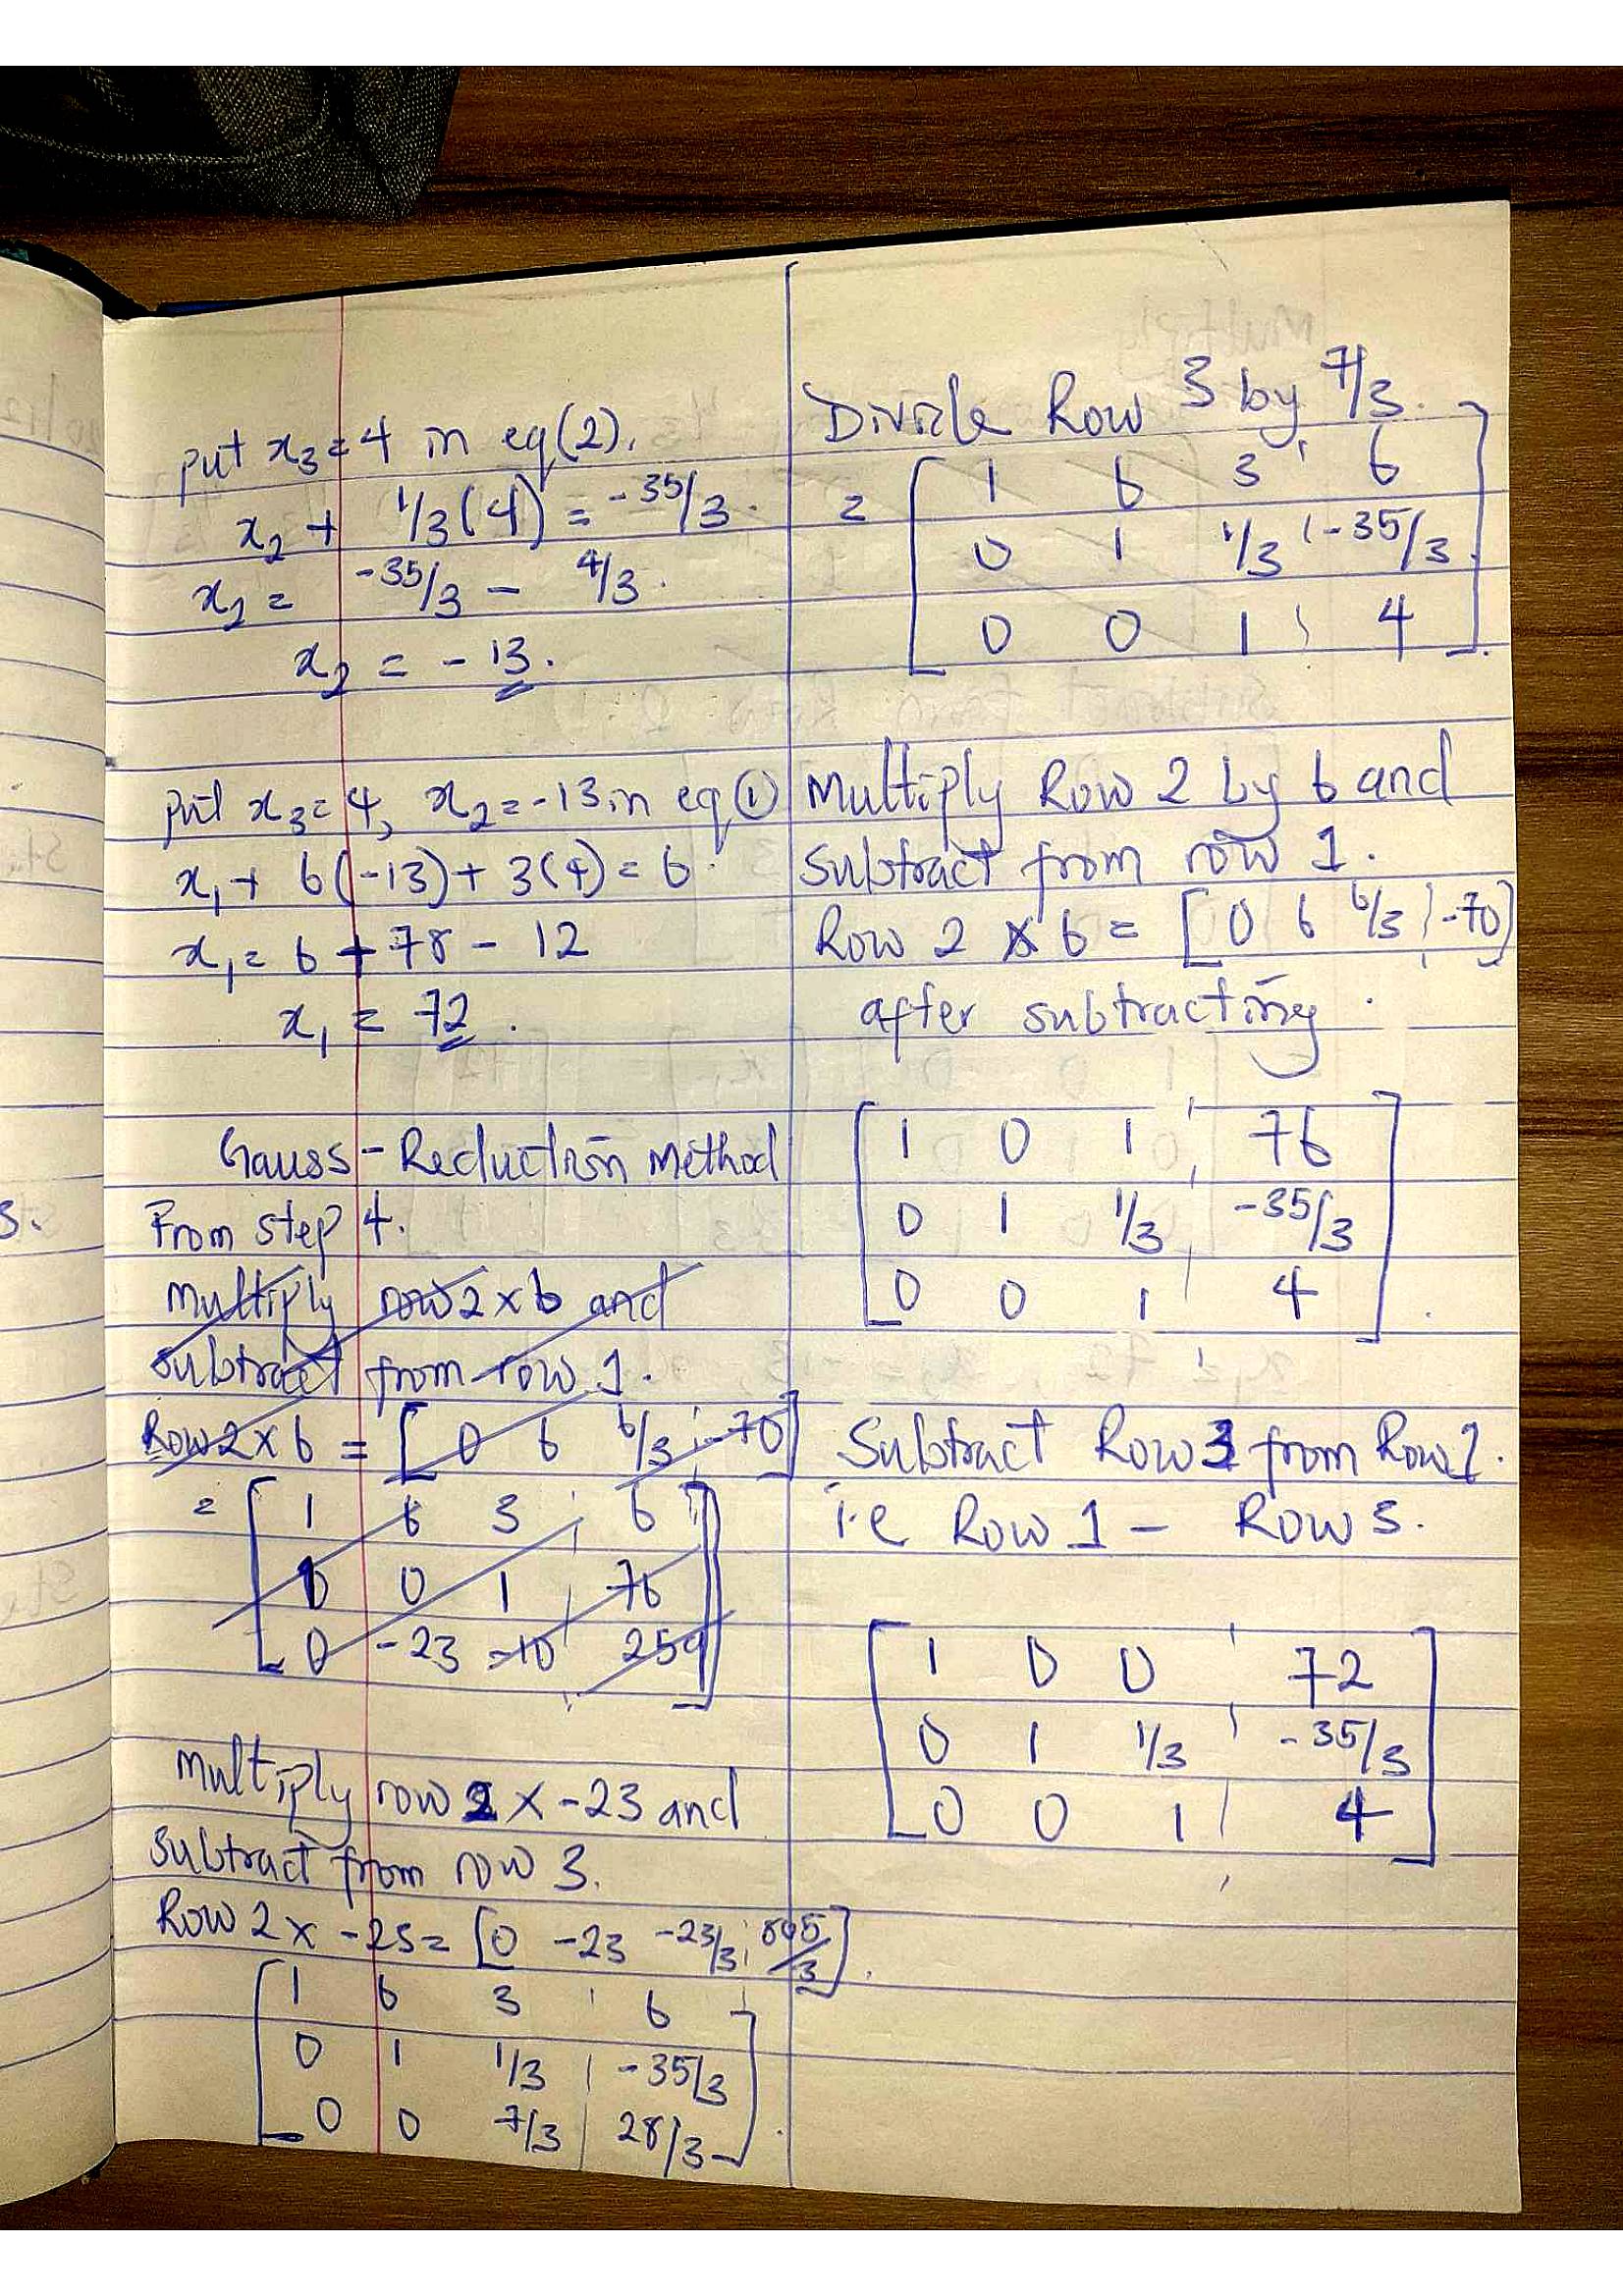 put x₃=4 in eq(2).
x₂ + 1/3(4) = -35/3.
x₂ = -35/3 - 4/3.
x₂ = -13.
put x₃=4, x₂=-13 in eq①
x₁+ 6(-13)+3(4)=6.
x₁= 6 + 78 - 12
x₁ = 72.
Gauss-Reduction Method
From step 4.
Multiply row 2 x 6 and
subtract from row 1.
Row 2 x 6 = [0 6 6/3 ¦ -70]
= [1 6 3 ¦ 6
0 0 1 ¦ 76
0 -23 -10 ¦ 259]
Multiply row 2 x -23 and
Subtract from row 3.
Row 2 x -23 = [0 -23 -23/3 ¦ 805/3].
[1 6 3 ¦ 6
0 1 1/3 ¦ -35/3
0 0 7/3 ¦ 28/3].
Divide Row 3 by 7/3.
= [1 6 3 ¦ 6
0 1 1/3 ¦ -35/3
0 0 1 ¦ 4].
Multiply Row 2 by 6 and
Subtract from row 1.
Row 2 x 6 = [0 6 6/3 ¦ -70]
after subtracting.
[1 0 1 ¦ 76
0 1 1/3 ¦ -35/3
0 0 1 ¦ 4].
Subtract Row 3 from Row 1.
i.e Row 1 - Row 3.
[1 0 0 ¦ 72
0 1 1/3 ¦ -35/3
0 0 1 ¦ 4]
3.